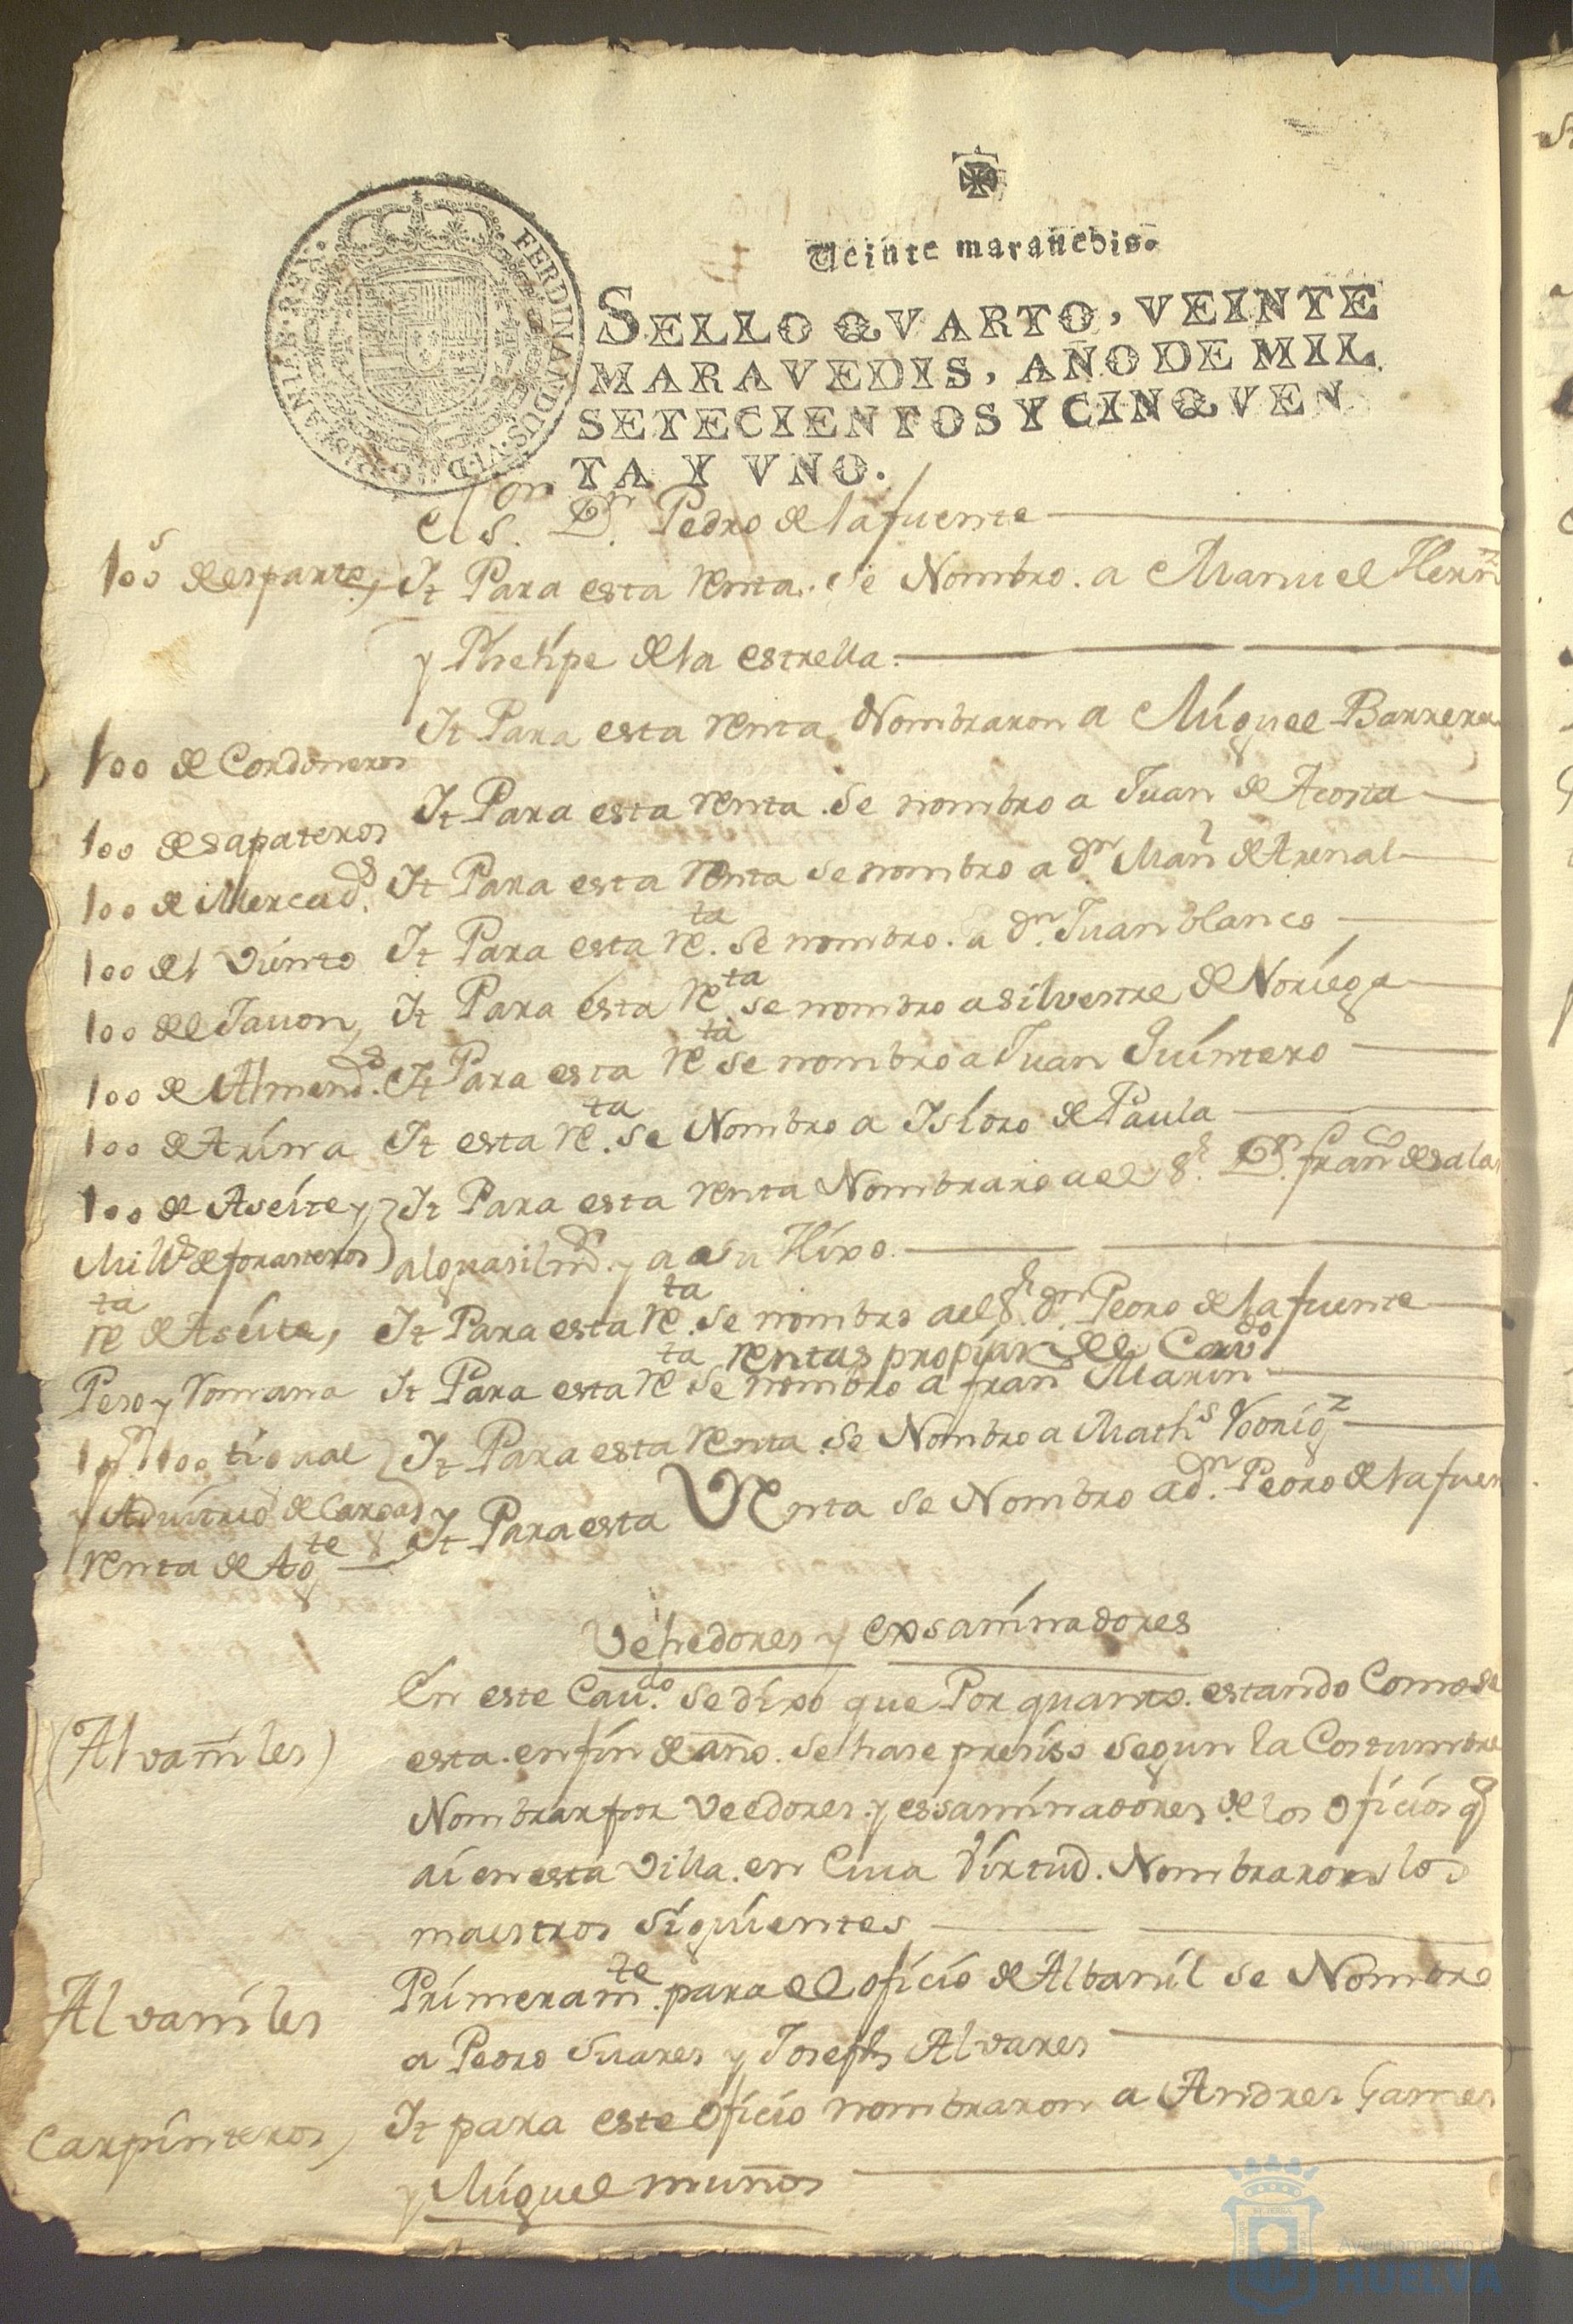 Veinte maravedis.
SELLO QVARTO, VEINTE
MARAVEDIS, AÑO DE MIL
SETECIENTOS Y CINQVEN
TA Y VNO.
FERDINANDUS VI D G HISPANIAR REX
el s. Dn. Pedro de la fuente
100s de esparto, It Para esta renta. se Nombro. a Manuel Hernz
y Phelipe de la estrella.
It Para esta renta Nombraron a Miguel Barrera
100 de Cordoneros
It Para esta renta. se nombro a Juan de Acosta
100 de sapateros
100 de Mercads. It Para esta renta se nombro a dn. Manl de Arenal
100 del viento It Para esta reta. se nombro. a dn. Juan blanco
100 de Javon, It Para esta reta se nombro a silvestre de Noriega
100 de Almends. It Para esta reta se nombro a Juan Quintero
100 de Arina It esta reta. se Nombro a Isidro de Paula
100 de Aseite y It Para esta renta Nombraro a el Sr. Dn. franco de salas
Mills de forasteros alguasil mr. y a a su Hixo.
reta de Aseite, It Para esta reta. se nombro a el Sr. dn Pedro de la fuente
rentas propias del Cavdo
Peso y Romana It Para esta reta se nombro a fran Marin
100 It Para esta renta. se Nombro a Maths Rodrigz
y Advitrio de Cargas
It Para esta Renta se Nombro a dn. Pedro de la fuen
renta de Agte
Vehedores y exsaminadores
En este Cavdo. se dixo que Por quanto. estando Como se
(Alvañiles) esta. en fin de año. se hase presiso segun la Costumbre
Nombrar por Veedores. y essaminadores de los Oficios q
ai en esta Villa. en Cuia Virtud. Nombraron los
maestros siguientes
Alvañiles Primeramte. para el oficio de Albañil se Nombro
a Pedro Suares y Joseph Alvares
Carpinteros, It para este Oficio nombraron a Andres Games
y Miguel muños
Ayuntamiento de
HUELVA